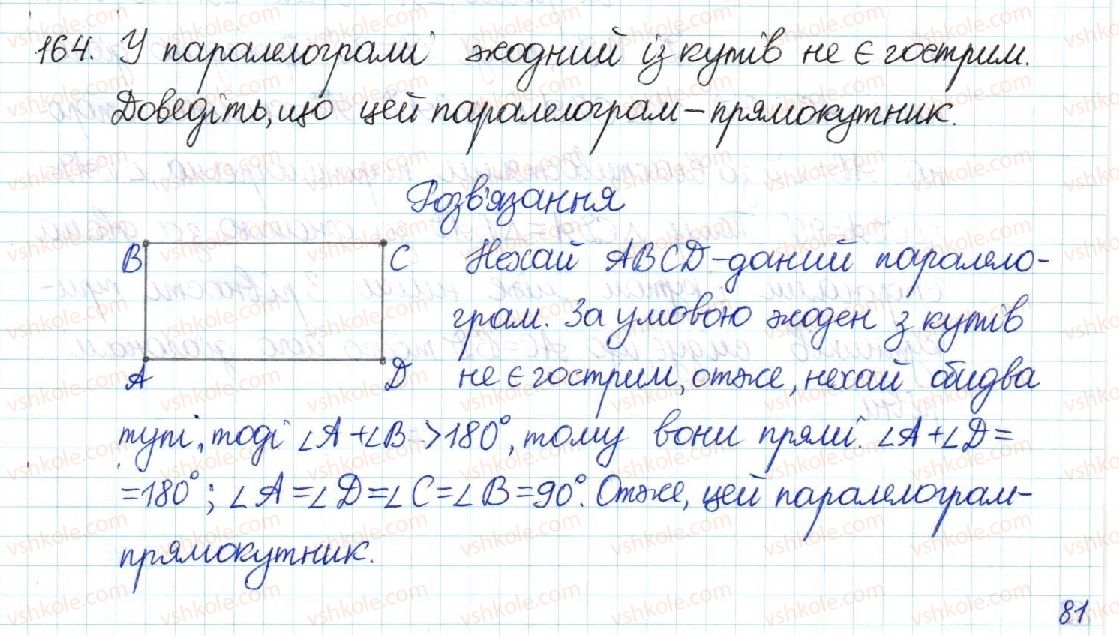 164. У паралелограмі жодний із кутів не є гострим.
Доведіть, що цей паралелограм – прямокутник.
Розв'язання
B C
A D
Нехай ABCD – даний паралело-
грам. За умовою жоден з кутів
не є гострим, отже, нехай обидва
тупі, тоді ∠A + ∠B = > 180°, тому вони прямі. ∠A + ∠D =
= 180°; ∠A = ∠D = ∠C = ∠B = 90°. Отже, цей паралелограм –
прямокутник.
81